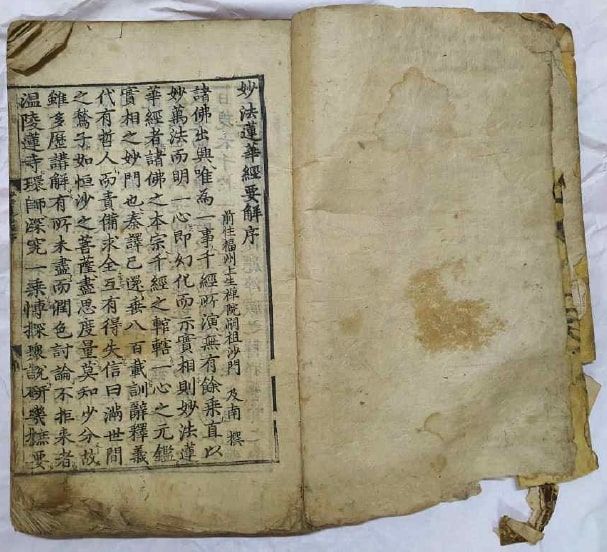 妙法蓮華經要解序
前住福州上生禪院嗣祖沙門 及南 撰
諸佛出興唯爲一事千經所演無有餘乗直以
妙萬法而明一心即幻化而示實相則妙法蓮
華經者諸佛之本宗千經之輨轄一心之元鑑
實相之妙門也秦譯已還垂八百載訓辭釋義
代有哲人而責備求全互有得失信曰滿世間
之鶖子如恒沙之菩薩盡思度量莫知少分故
雖多歷講解有所未盡而潤色討論不拒来者
温陵蓮寺環師深究一乗愽探衆說研幾摭要